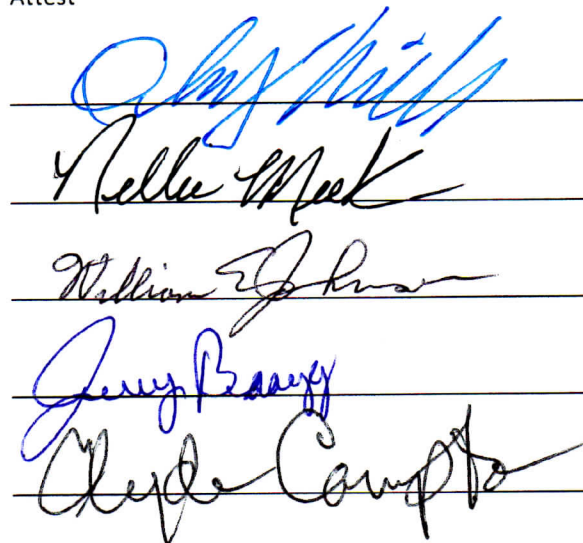 Attest
Nellie Meek
William E Johnson
Jerry
Clyde Compton